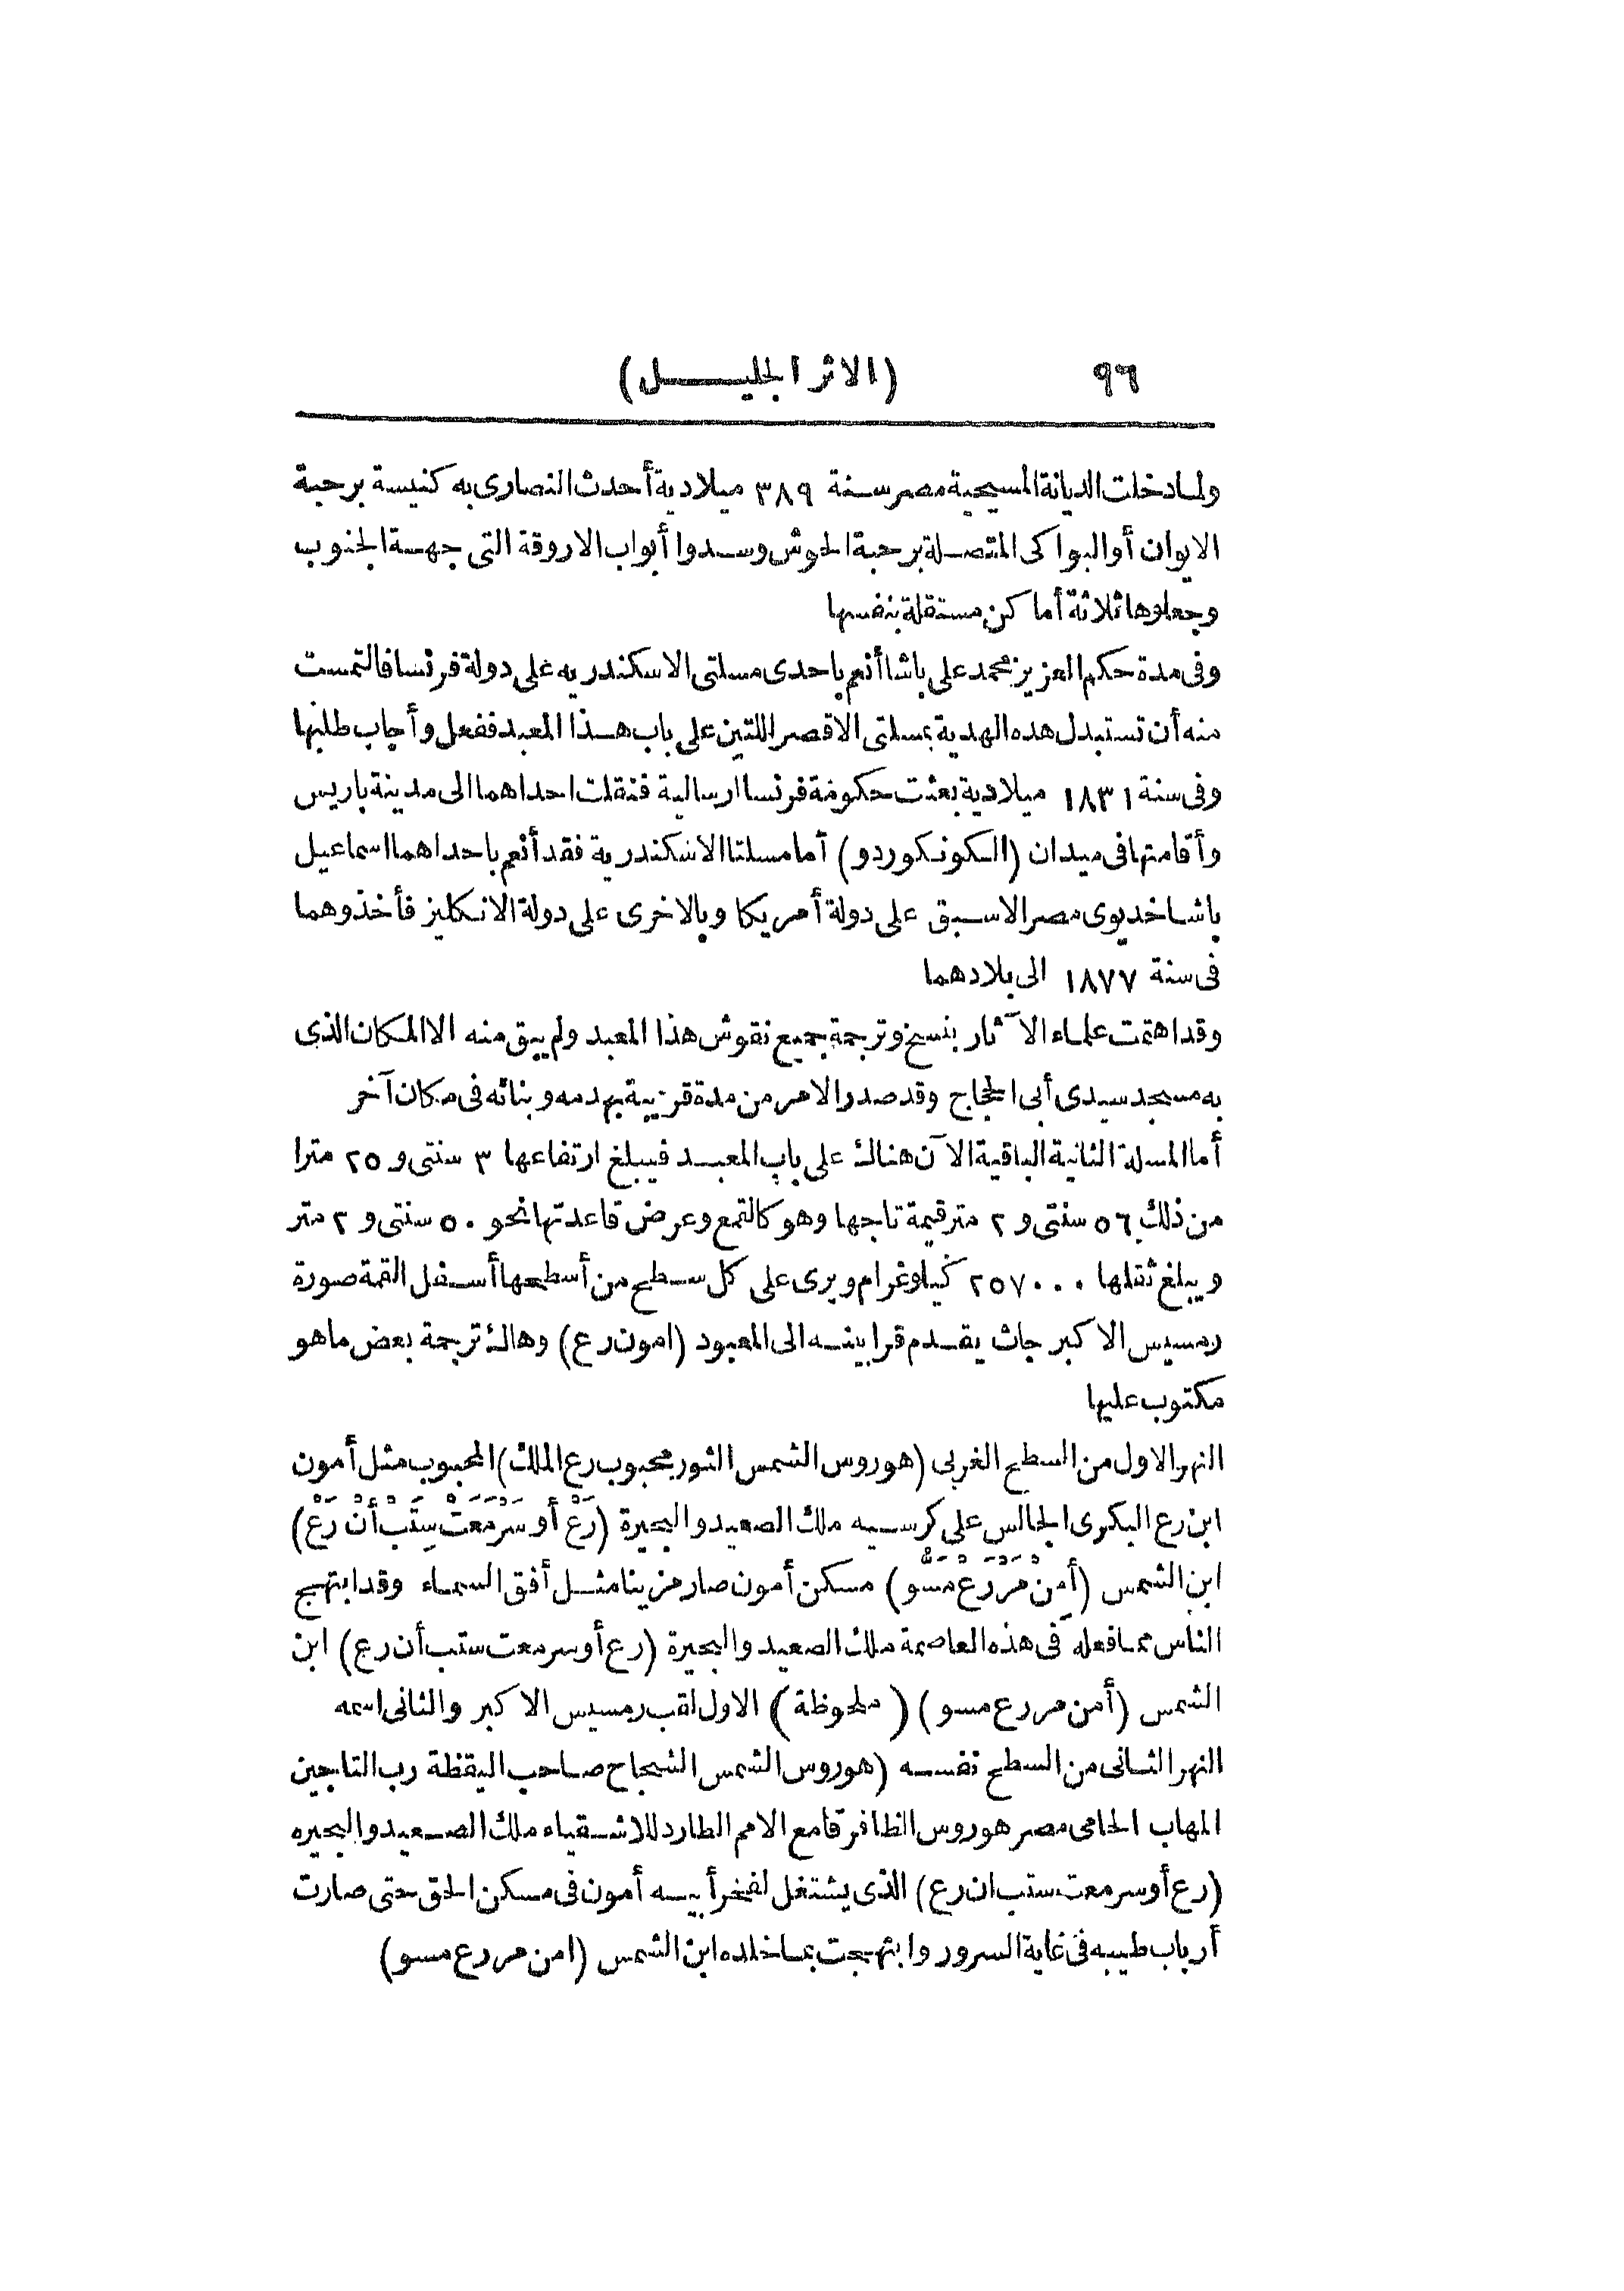 ٩٦ (الاثر الجليل)
ولما دخلت الديانة المسيحية مصر سنة ٣٨٩ ميلادية أحدث النصارى به كنيسة برحبة
الايوان أو البواكى المتصلة برحبة الحوش وسدوا أبواب الاروقة التى جهة الجنوب
وجعلوها ثلاثة أماكن مستقلة بنفسها
وفى مدة حكم العزيز محمد على باشا أنعم باحدى مسلتى الاسكندريه على دولة فرنسا فالتمست
منه أن تستبدل هذه الهدية بمسلتى الاقصر اللتين على باب هذا المعبد ففعل وأجاب طلبها
وفى سنة ١٨٣١ ميلادية بعثت حكومة فرنسا ارسالية فنقلت احداهما الى مدينة باريس
وأقامتها فى ميدان (الكونكوردو) أما مسلتا الاسكندرية فقد أنعم باحداهما اسماعيل
باشا خديوى مصر الاسبق على دولة أمريكا وبالاخرى على دولة الانكليز فأخذوهما
فى سنة ١٨٧٧ الى بلادهما
وقد اهتمت علماء الآثار بنسخ وترجمة جميع نقوش هذا المعبد ولم يبق منه الا المكان الذى
به مسجد سيدى أبى الحجاج وقد صدر الامر من مدة قريبة بهدمه وبنائه فى مكان آخر
أما المسلة الثانية الباقية الآن هناك على باب المعبد فيبلغ ارتفاعها ٣ سنتى و ٢٥ مترا
من ذلك ٥٦ سنتى و ٢ متر قيمة تاجها وهو كالقمع وعرض قاعدتها نحو ٥٠ سنتى و ٢ متر
ويبلغ ثقلها ٢٥٧٠٠٠ كيلوغرام ويرى على كل سطح من أسطحها أسفل القمة صورة
رمسيس الاكبر جاث يقدم قرابينه الى المعبود (امون رع) وهاك ترجمة بعض ما هو
مكتوب عليها
النهر الاول من السطح الغربى (هوروس الشمس الثور محبوب رع الملك) المحبوب مثل أمون
ابن رع البكرى الجالس على كرسيه ملك الصعيد والبحيرة (رَعْ أُوسَرْمَعَتْ سِتَبْ أَنْ رَعْ)
ابن الشمس (أَمِنْ مَرْرَعْ مَسُّو) مسكن أمون صار مزينا مثل أفق السماء وقد ابتهج
الناس مما فعله فى هذه العاصمة ملك الصعيد والبحيرة (رع أوسر معت ستب أن رع) ابن
الشمس (أمن مر رع مسو) (ملحوظة) الاول لقب رمسيس الاكبر والثانى اسمه
النهر الثانى من السطح نفسه (هوروس الشمس الشجاع صاحب اليقظة رب التاجين
المهاب الحامى مصر هوروس الظافر قامع الامم الطارد للاشقياء ملك الصعيد والبحيره
(رع أوسر معت ستب ان رع) الذى يشتغل لفخر أبيه أمون فى مسكن الحق حتى صارت
أرباب طيبه فى غاية السرور وابتهجت بما خلده ابن الشمس (امن مر رع مسو)